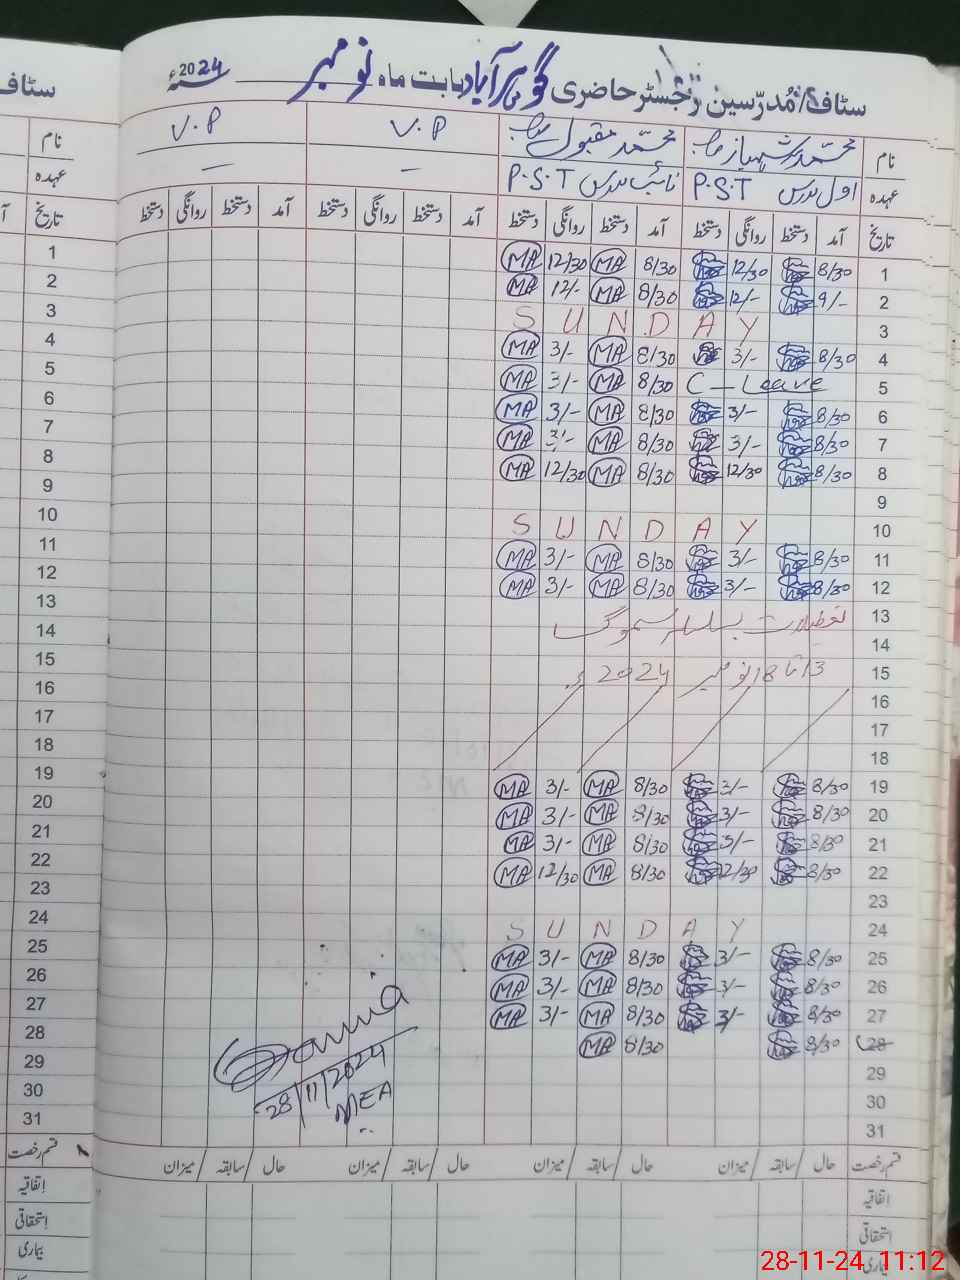 سٹاف/مُدرّسین رجسٹر حاضری گوہر آباد بابت ماہ نومبر 2024ء
نام محمد شہباز صاحب محمد مقبول صاحب V.P V.P
عہدہ اول مدرس P.S.T نائب مدرس P.S.T — —
تاریخ آمد دستخط روانگی دستخط آمد دستخط روانگی دستخط آمد دستخط روانگی دستخط آمد دستخط روانگی دستخط
1 8/30 12/30 8/30 MA 12/30 MA 1
2 9/- 12/- 8/30 MA 12/- MA 2
3 S U N D A Y 3
4 8/30 3/- 8/30 MA 3/- MA 4
5 C - Leave 8/30 MA 3/- MA 5
6 8/30 3/- 8/30 MA 3/- MA 6
7 8/30 3/- 8/30 MA 3/- MA 7
8 8/30 12/30 8/30 MA 12/30 MA 8
9 9
10 S U N D A Y 10
11 8/30 3/- 8/30 MA 3/- MA 11
12 8/30 3/- 8/30 MA 3/- MA 12
13 تعطیلات بسلسلہ سموگ 13
14 14
15 13 تا 18 نومبر 2024ء 15
16 16
17 17
18 18
19 8/30 3/- 8/30 MA 3/- MA 19
20 8/30 3/- 8/30 MA 3/- MA 20
21 8/30 3/- 8/30 MA 3/- MA 21
22 8/30 12/30 8/30 MA 12/30 MA 22
23 23
24 S U N D A Y 24
25 8/30 3/- 8/30 MA 3/- MA 25
26 8/30 3/- 8/30 MA 3/- MA 26
27 8/30 3/- 8/30 MA 3/- MA 27
28 8/30 8/30 MA 28
29 29
30 30
31 31
28/11/2024
MEA
قسم رخصت حال سابقہ میزان حال سابقہ میزان حال سابقہ میزان حال سابقہ میزان قسم رخصت
اتفاقیہ اتفاقیہ
استحقاقی استحقاقی
بیماری بیماری
سٹاف
نام
عہدہ
تاریخ
28-11-24 11:12